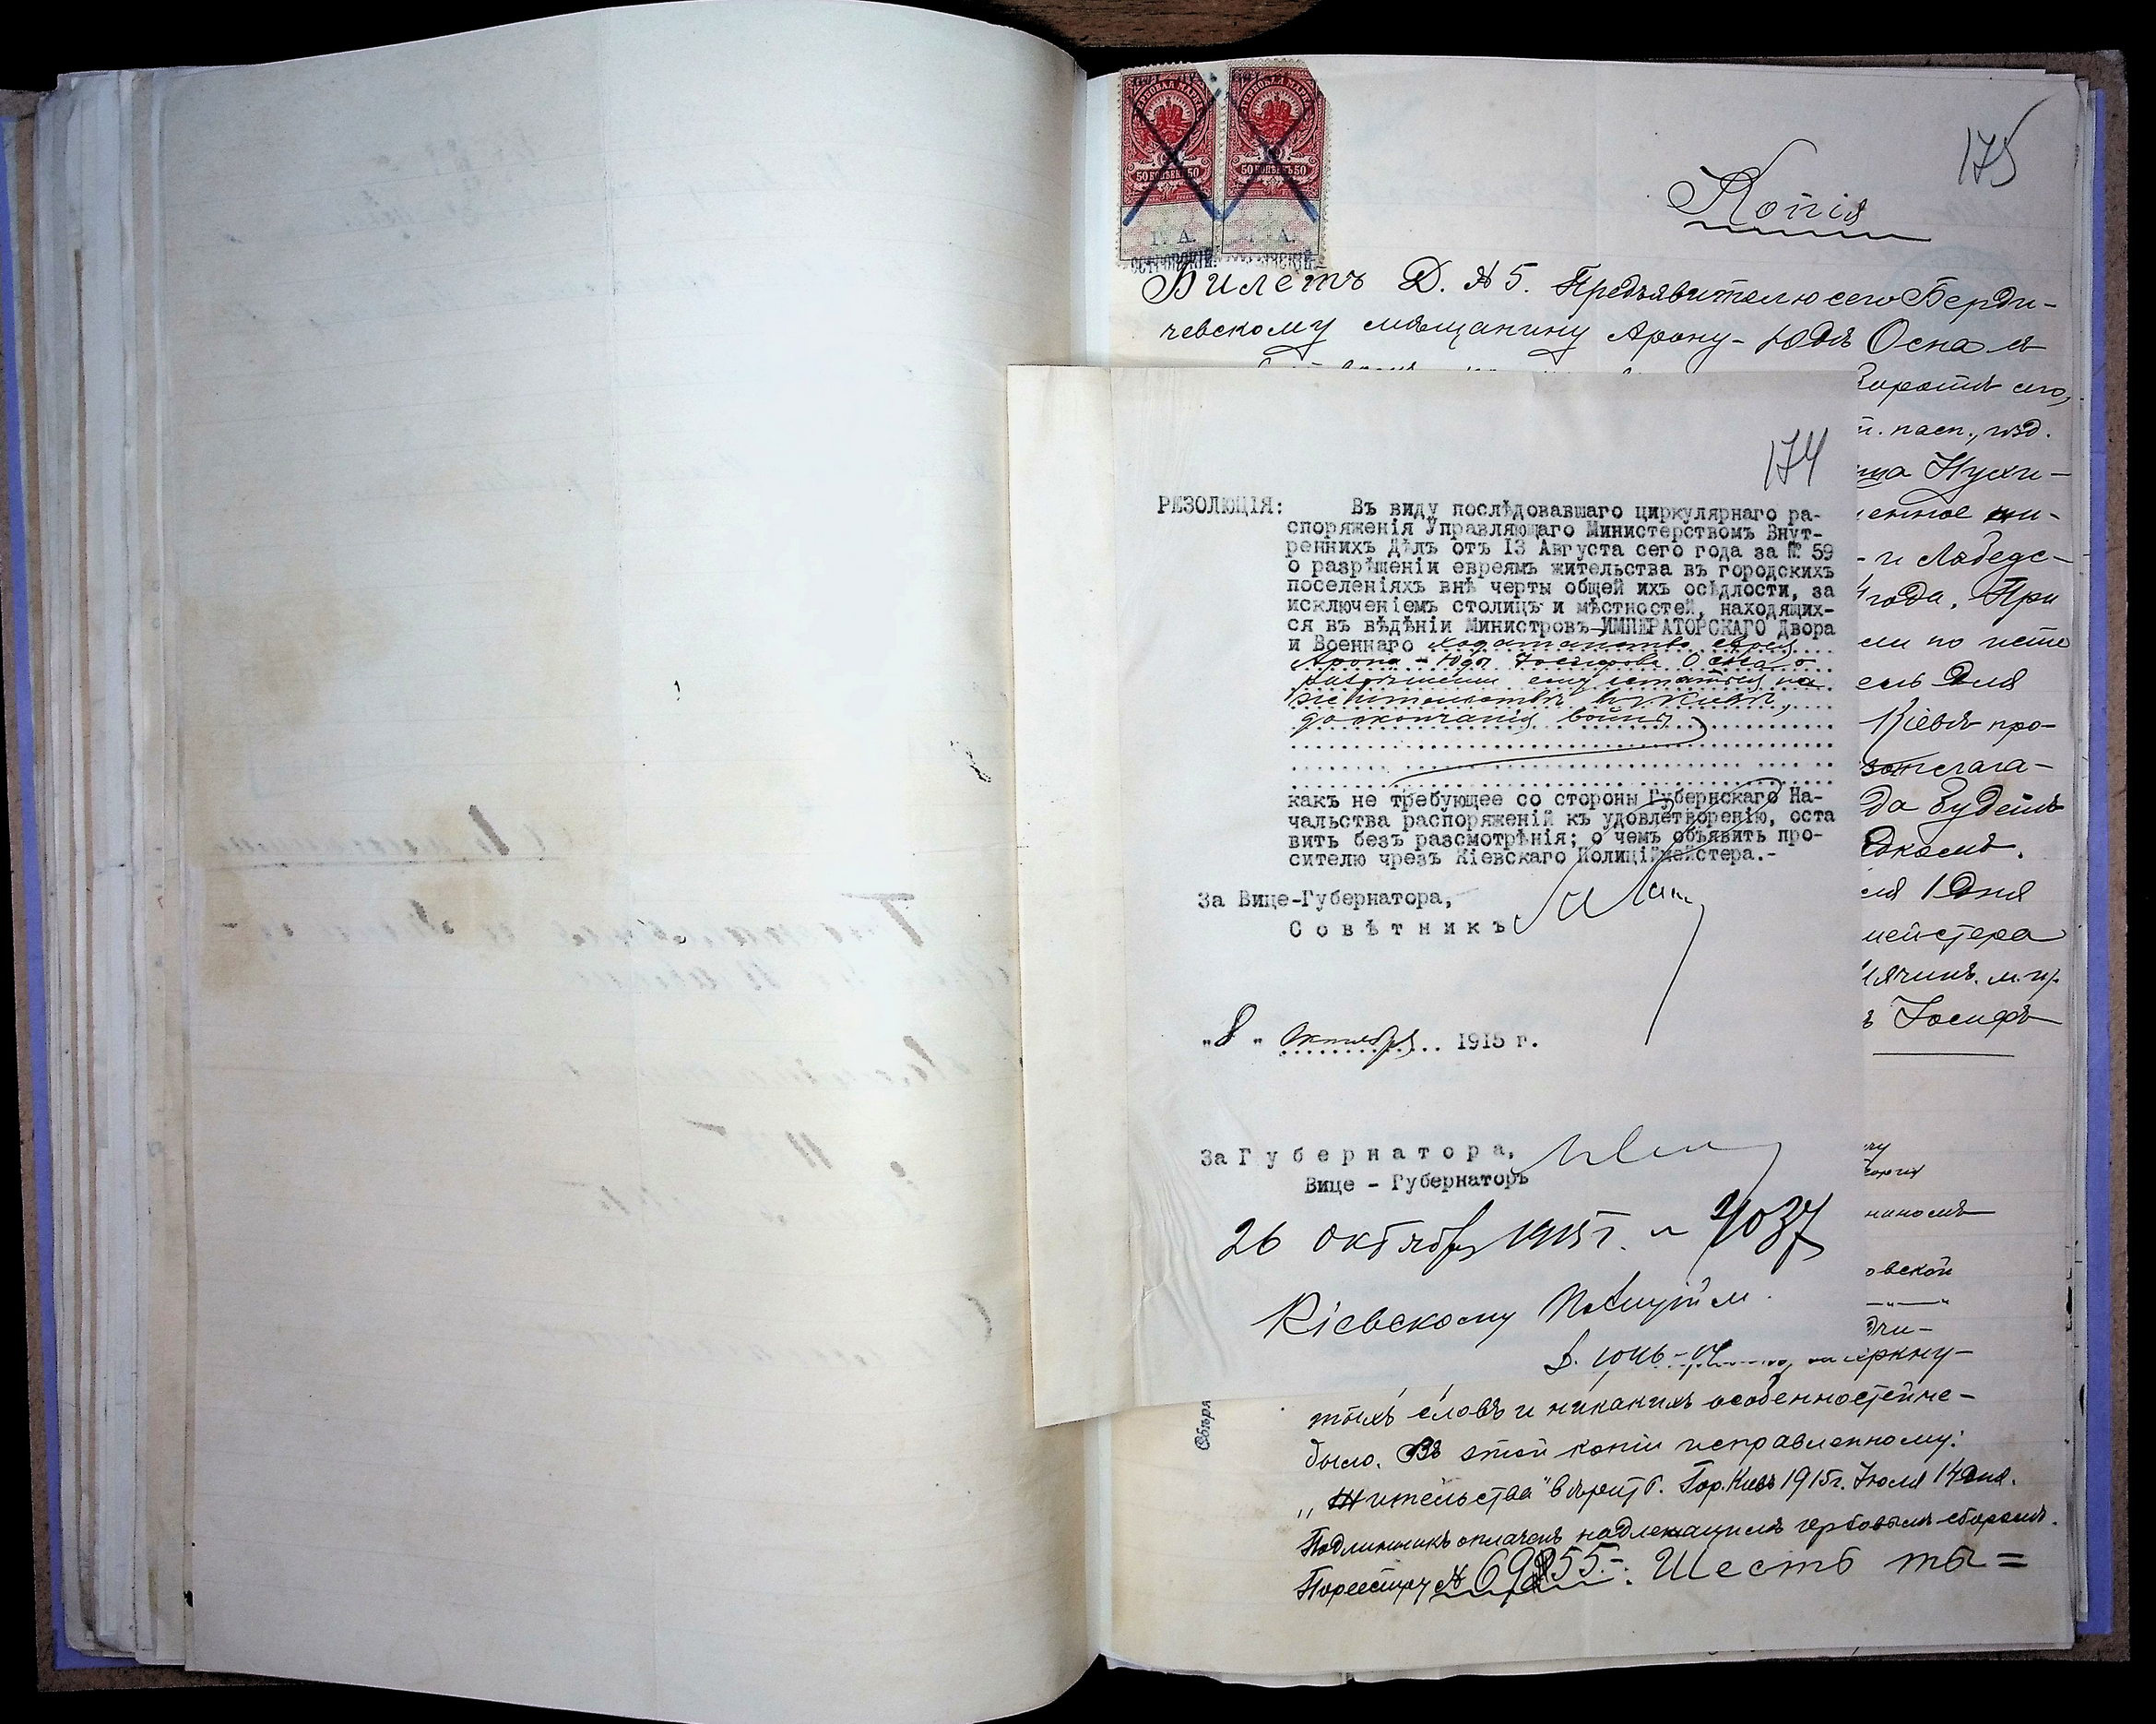 175
Копія
ГЕРБОВАЯ МАРКА
50 КОПѢЕКЪ 50
ГЕРБОВАЯ МАРКА
50 КОПѢЕКЪ 50
Билетъ Д. № 5. Предъявителю сего Берди-
чевскому мѣщанину Арону-Юдѣ Оспа
174
РЕЗОЛЮЦІЯ: Въ виду послѣдовавшаго циркулярнаго ра-
споряженія Управляющаго Министерствомъ Внут-
реннихъ Дѣлъ отъ 13 Августа сего года за № 59
о разрѣшеніи евреямъ жительства въ городскихъ
поселеніяхъ внѣ черты общей ихъ осѣдлости, за
исключеніемъ столицъ и мѣстностей, находящих-
ся въ вѣдѣніи Министровъ ИМПЕРАТОРСКАГО Двора
и Военнаго ходатайство еврея
Арона-Юды Іосифова Оспа о
разрѣшеніи ему остаться на
жительствѣ въ г. Кіевѣ,
до окончанія войны
какъ не требующее со стороны Губернскаго На-
чальства распоряженій къ удовлетворенію, оста
вить безъ разсмотрѣнія; о чемъ объявить про-
сителю чрезъ Кіевскаго Полиціймейстера.-
За Вице-Губернатора,
Совѣтникъ
"8" Октября 1915 г.
За Губернатора,
Вице - Губернаторъ
26 октября 1915 г. № 4037
Кіевскому Полиційм.
его,
п. пасп., изд.
Нухи-
и Лѣбедс-
года. При
для
Кіевѣ про-
да будетъ
1 дня
мейстера
Іосифъ
овской
тыхъ словъ и никакихъ особенностей не-
было. Въ этой копіи исправленному:
„Жительства" вѣрить. Гор. Кіевъ 1915 г. Іюля 14 дня.
Подлинникъ оплаченъ надлежащимъ гербовымъ сборомъ.
По реестру № 6955. Шесть ты=